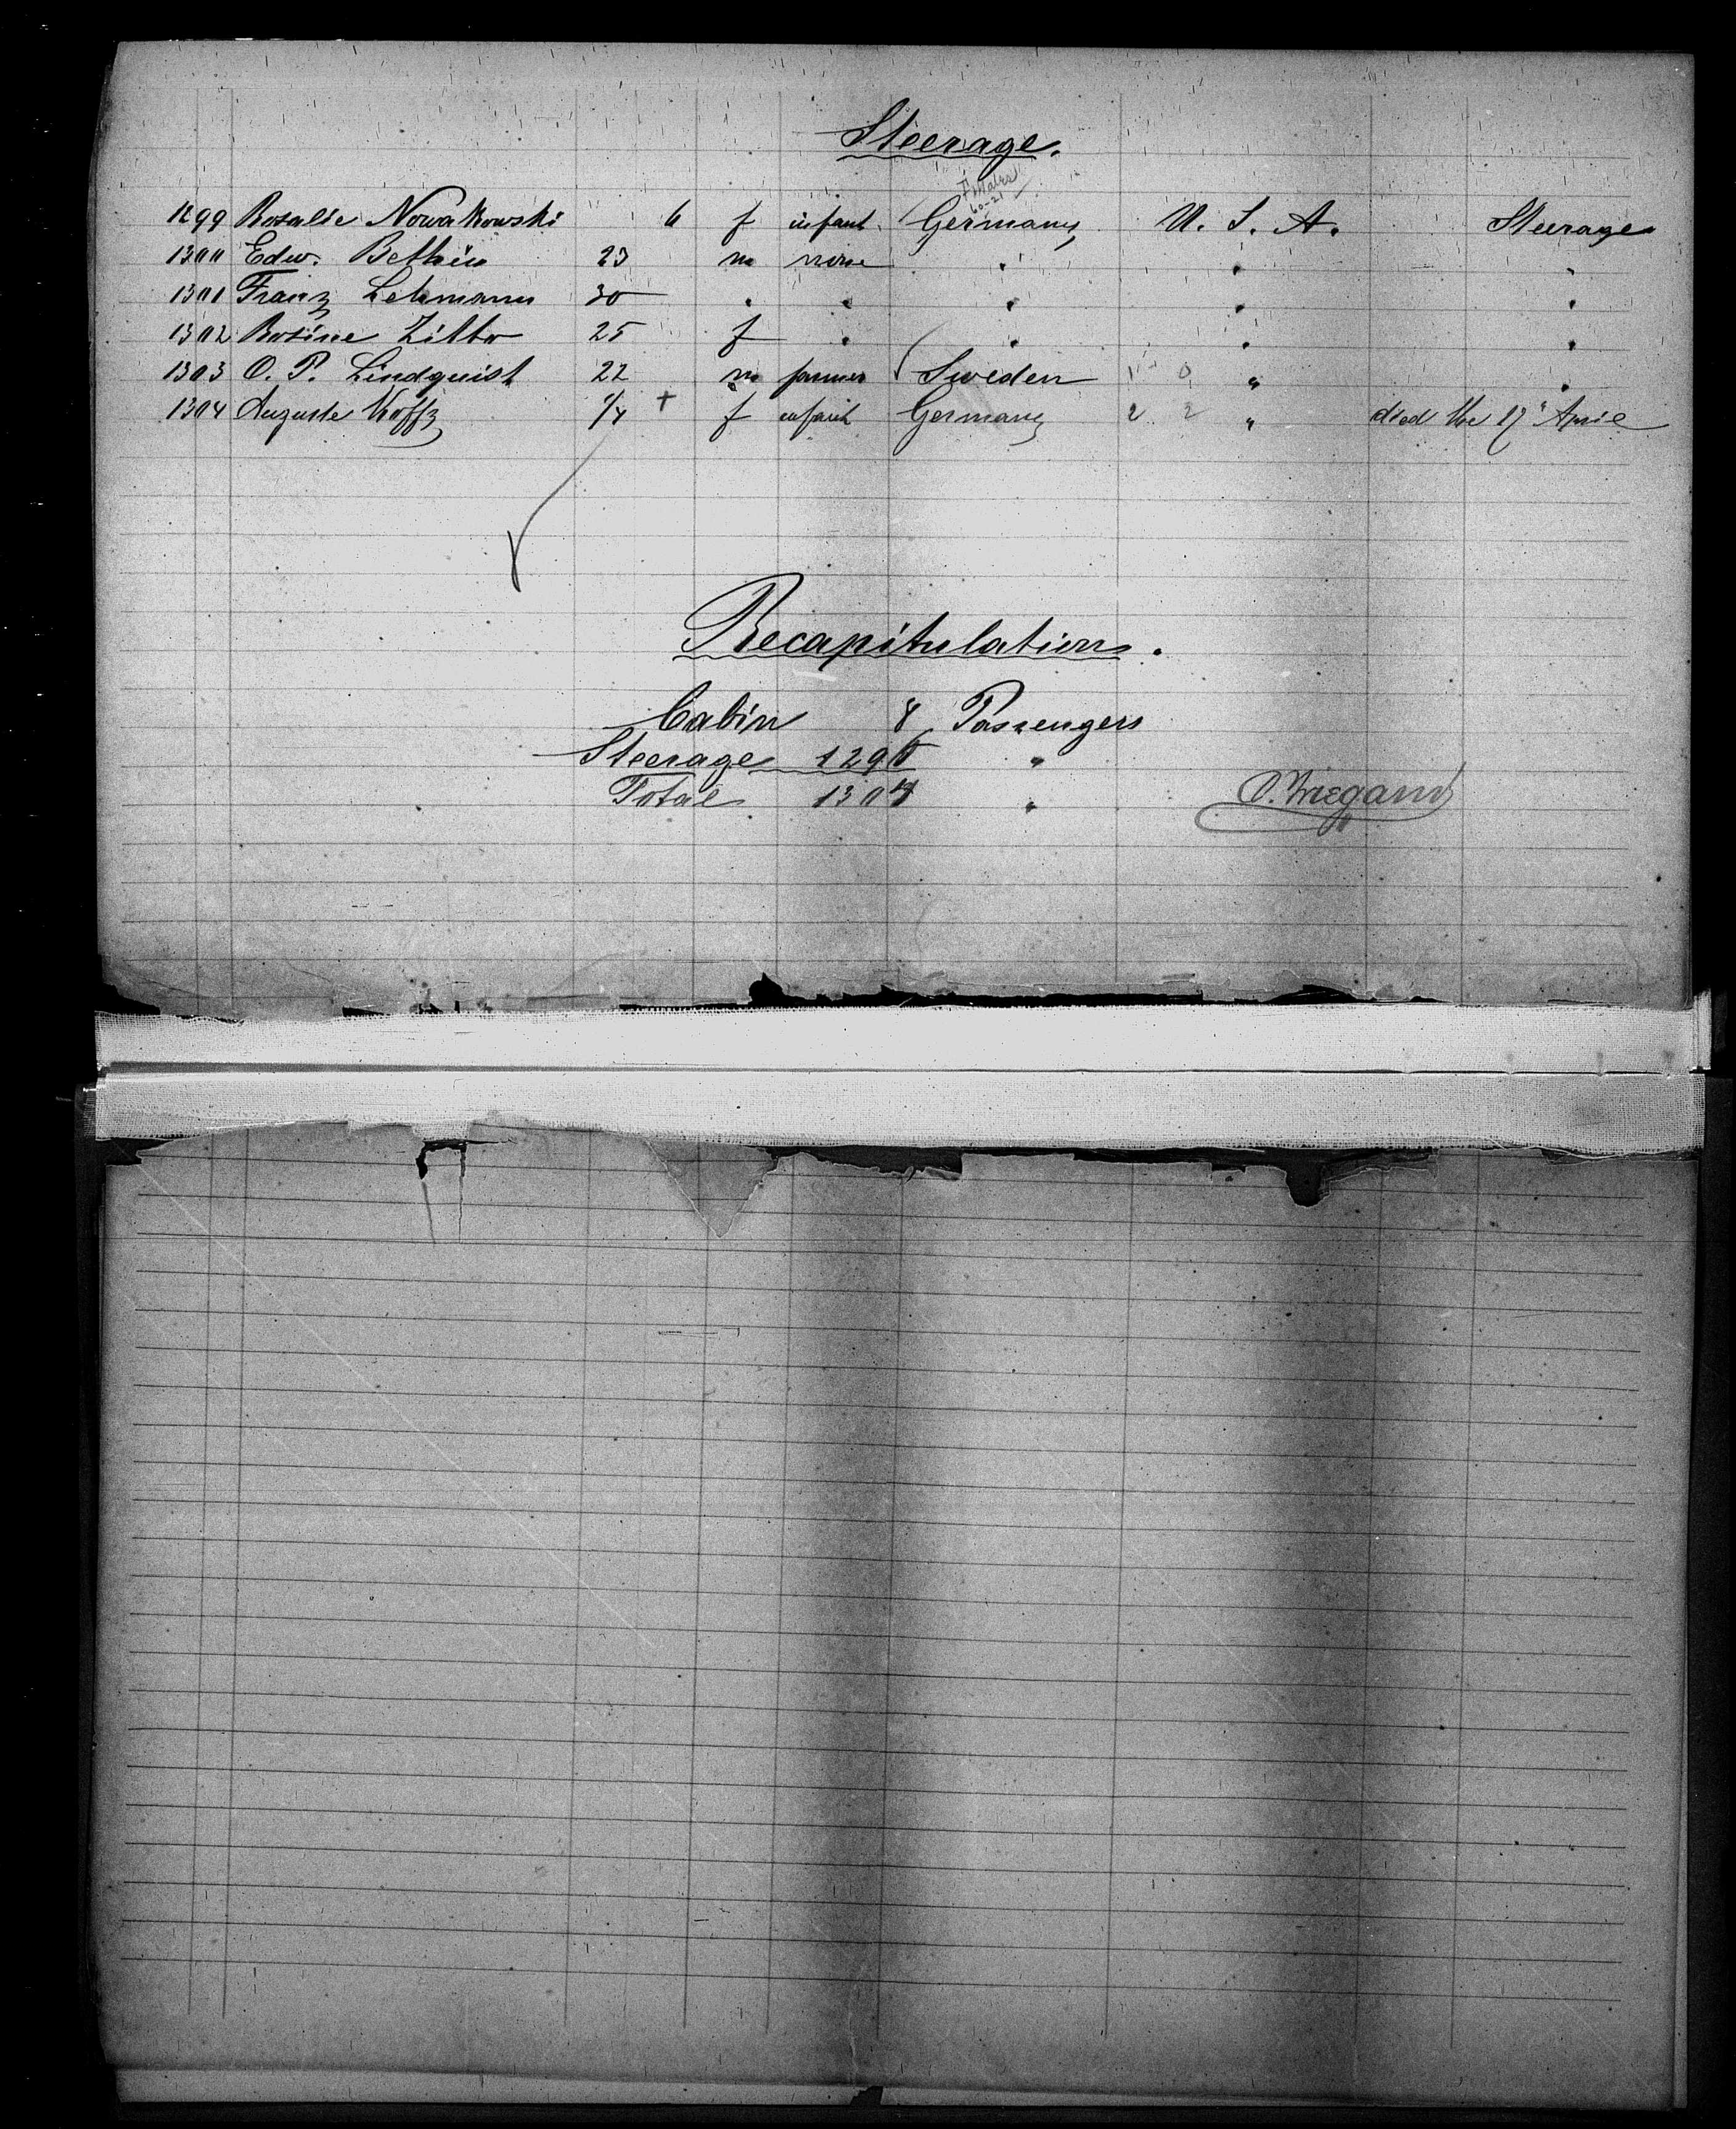 Steerage.
1299 Rosalie Nowakowski 6 f infant Germany U. S. A. Steerage
1300 Edw. Bethin 23 m none " " "
1301 Franz Lehmann 30 " " " " "
1302 Rosine 25 f " " " "
1303 O. P. Lindquist 22 m farmer Sweden 1 0 " "
1304 Auguste 1/4 + f infant Germany 2 2 " died the 17" April
Recapitulation.
Cabin 8 Passengers
Steerage 1296 "
Total 1304 "
O. Wiegand